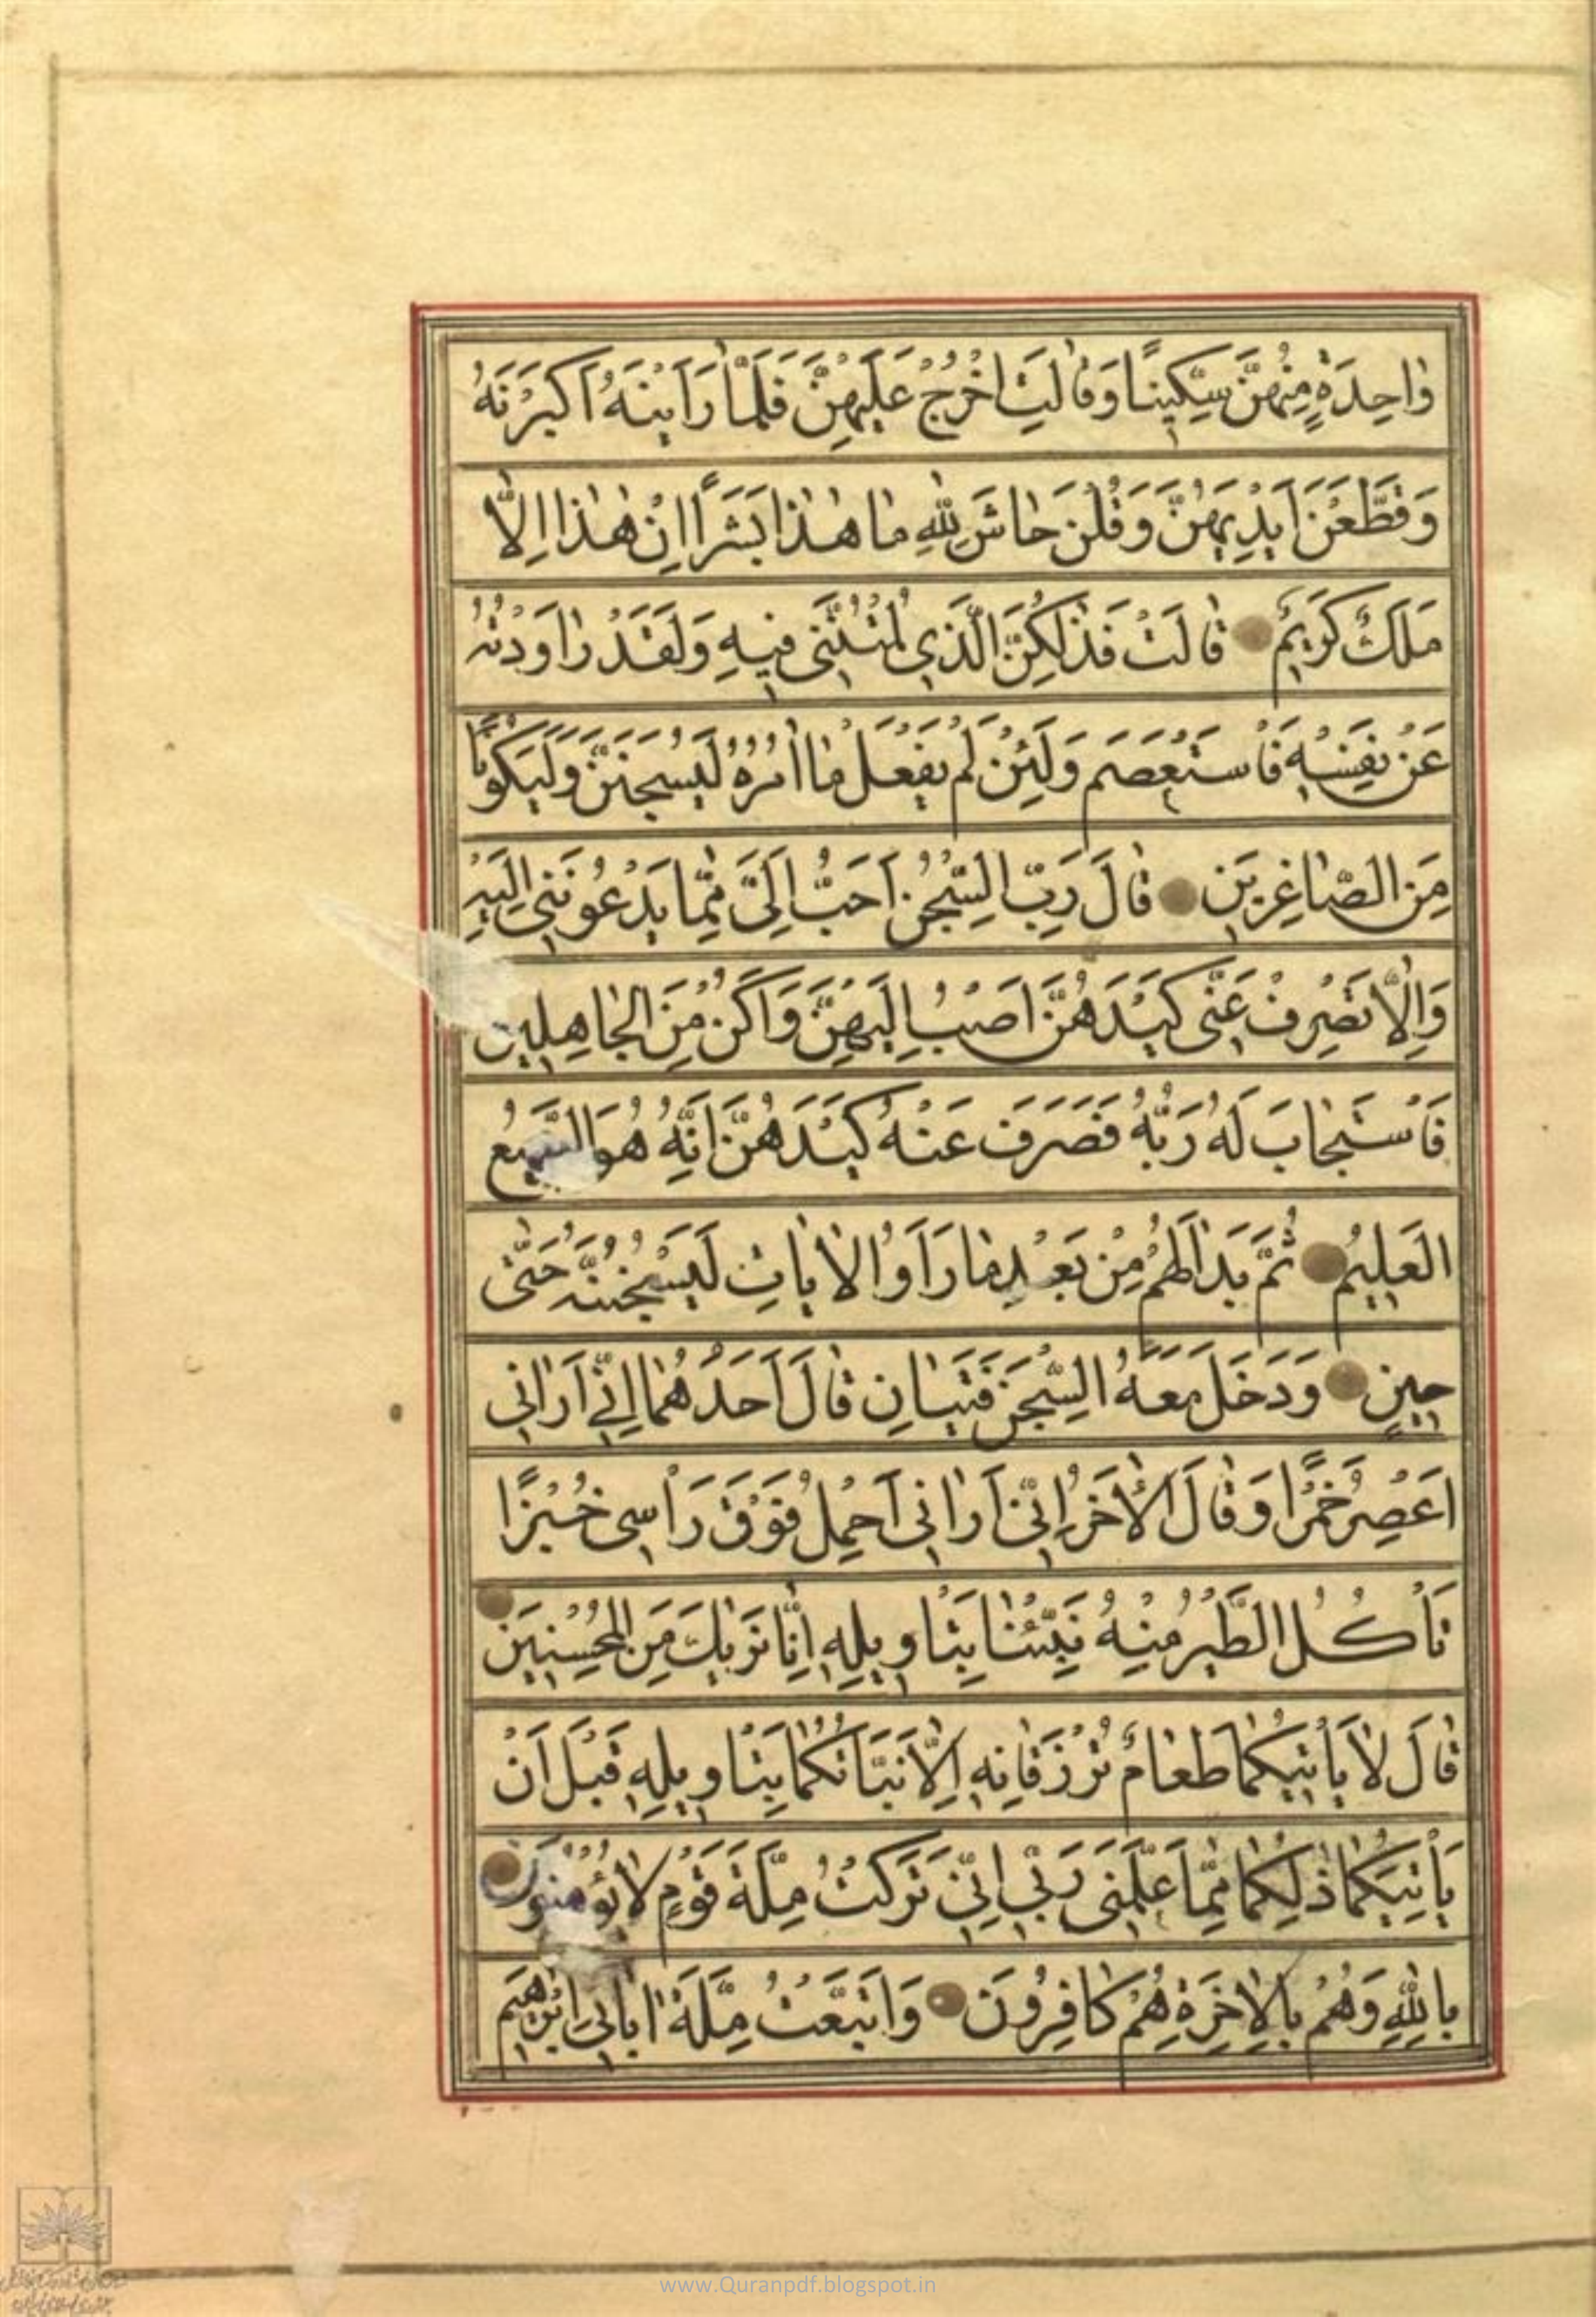 واحِدَةٍ مِنْهُنَّ سِكِّينًا وَقالَتِ اخْرُجْ عَلَيْهِنَّ فَلَمّا رَاَيْنَهُ اَكْبَرْنَهُ
وَقَطَّعْنَ اَيْدِيَهُنَّ وَقُلْنَ حاشَ لِلّٰهِ ما هٰذا بَشَرًا اِنْ هٰذا اِلّا
مَلَكٌ كَرِيمٌ قالَتْ فَذٰلِكُنَّ الَّذِي لُمْتُنَّنِي فِيهِ وَلَقَدْ راوَدْتُهُ
عَنْ نَفْسِهِ فَاسْتَعْصَمَ وَلَئِنْ لَمْ يَفْعَلْ ما اٰمُرُهُ لَيُسْجَنَنَّ وَلَيَكُونًا
مِنَ الصّاغِرِينَ قالَ رَبِّ السِّجْنُ اَحَبُّ اِلَيَّ مِمّا يَدْعُونَنِي اِلَيْهِ
وَاِلّا تَصْرِفْ عَنِّي كَيْدَهُنَّ اَصْبُ اِلَيْهِنَّ وَاَكُنْ مِنَ الْجاهِلِينَ
فَاسْتَجابَ لَهُ رَبُّهُ فَصَرَفَ عَنْهُ كَيْدَهُنَّ اِنَّهُ هُوَ السَّمِيعُ
الْعَلِيمُ ثُمَّ بَدا لَهُمْ مِنْ بَعْدِ ما رَاَوُا الْاٰياتِ لَيَسْجُنُنَّهُ حَتّٰى
حِينٍ وَدَخَلَ مَعَهُ السِّجْنَ فَتَيانِ قالَ اَحَدُهُما اِنِّي اَرانِي
اَعْصِرُ خَمْرًا وَقالَ الْاٰخَرُ اِنِّي اَرانِي اَحْمِلُ فَوْقَ رَأْسِي خُبْزًا
تَأْكُلُ الطَّيْرُ مِنْهُ نَبِّئْنا بِتَأْوِيلِهِ اِنّا نَرٰيكَ مِنَ الْمُحْسِنِينَ
قالَ لا يَأْتِيكُما طَعامٌ تُرْزَقانِهِ اِلّا نَبَّأْتُكُما بِتَأْوِيلِهِ قَبْلَ اَنْ
يَأْتِيَكُما ذٰلِكُما مِمّا عَلَّمَنِي رَبِّي اِنِّي تَرَكْتُ مِلَّةَ قَوْمٍ لا يُؤْمِنُونَ
بِاللّٰهِ وَهُمْ بِالْاٰخِرَةِ هُمْ كافِرُونَ وَاتَّبَعْتُ مِلَّةَ اٰبائِي اِبْرٰهِيمَ
www.Quranpdf.blogspot.in